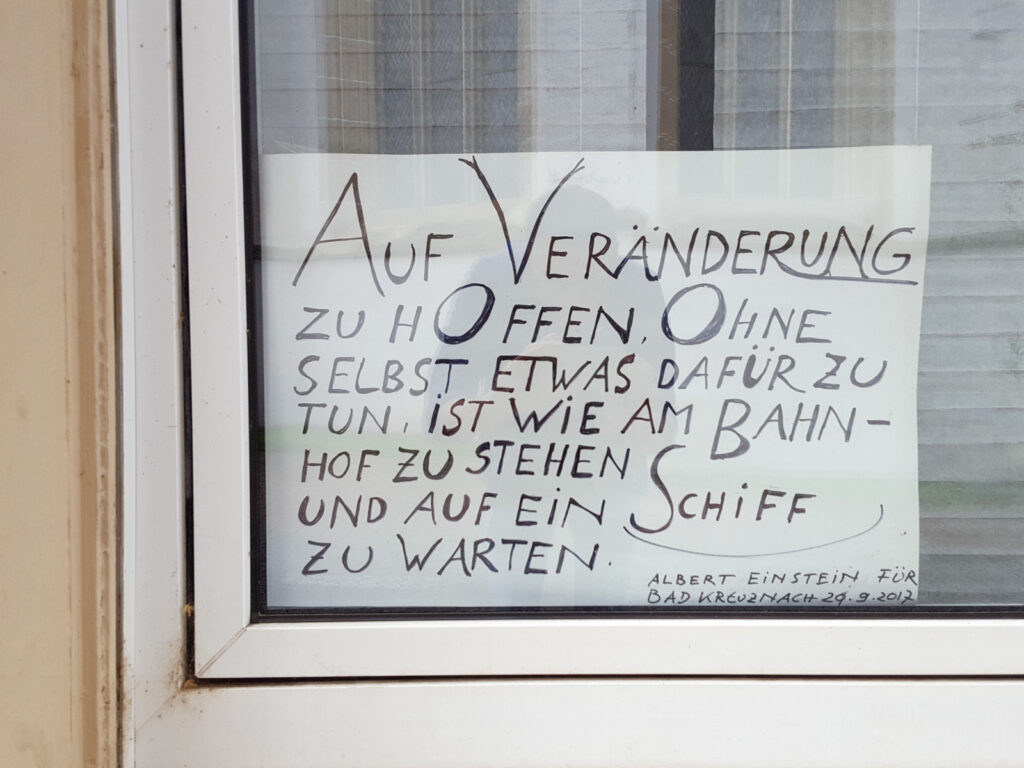 AUF VERÄNDERUNG
ZU HOFFEN, OHNE
SELBST ETWAS DAFÜR ZU
TUN, iST WiE AM BAHN-
HOF ZU STEHEN
UND AUF EiN SCHiFF
ZU WARTEN.
ALBERT EiNSTEiN FÜR
BAD KREUZNACH 29.9.2017